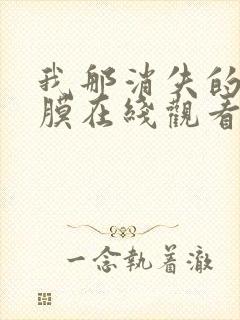 我那消失的
膜在线觀看
一念執着澈